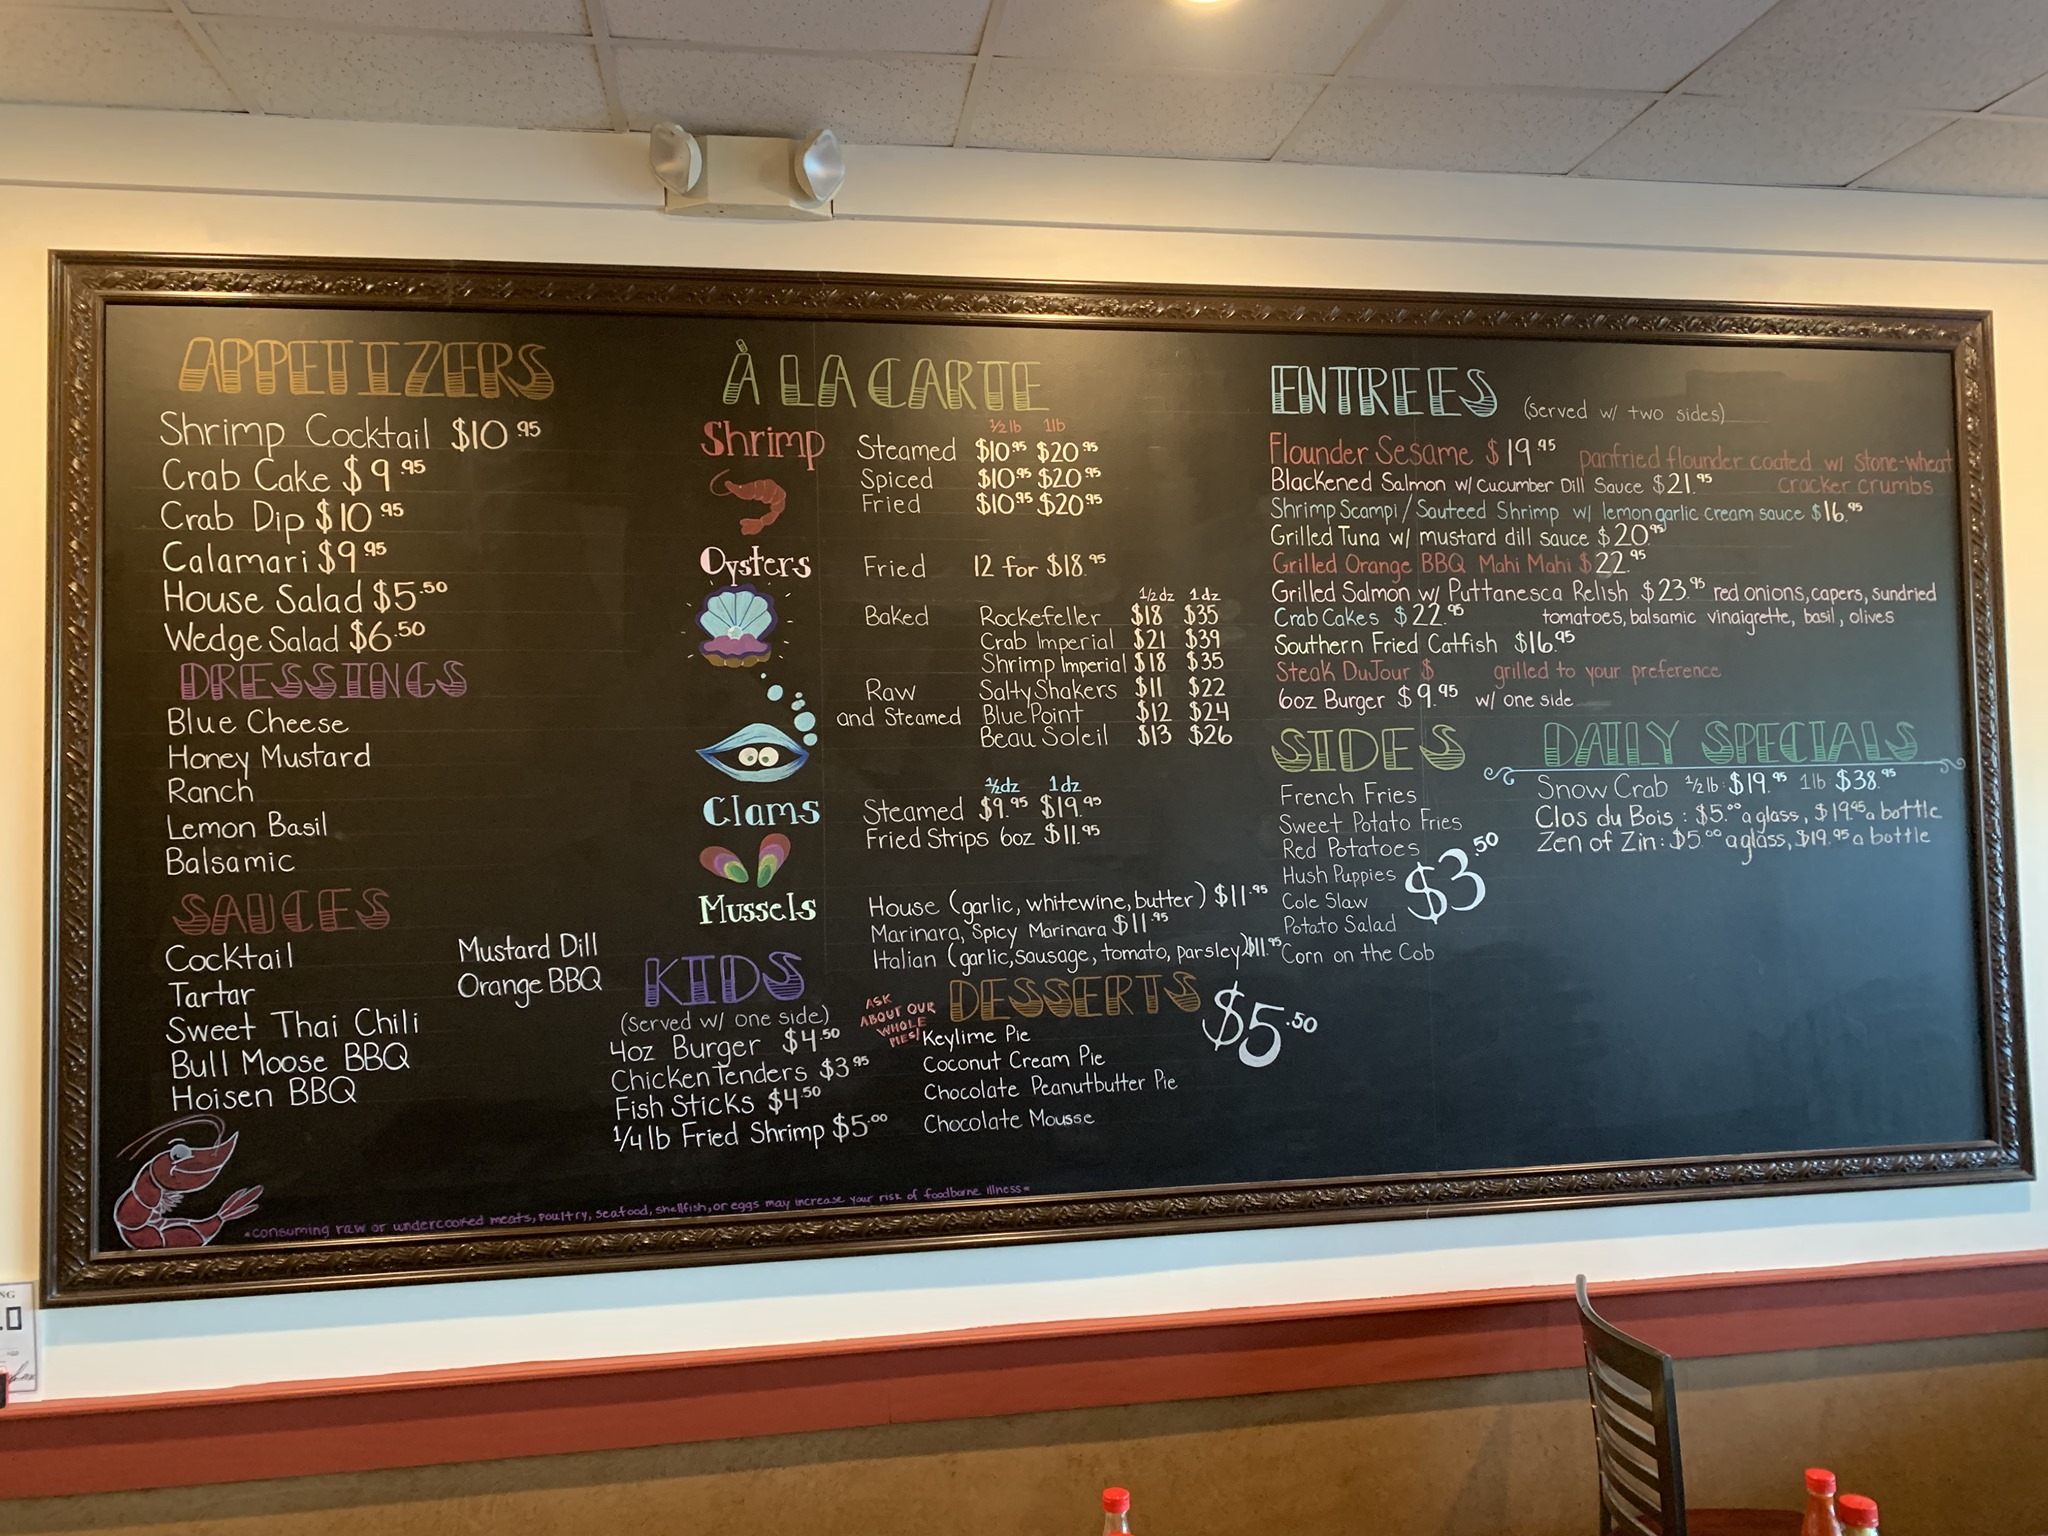 APPETIZERS
Shrimp Cocktail $10.95
Crab Cake $9.95
Crab Dip $10.95
Calamari $9.95
House Salad $5.50
Wedge Salad $6.50
DRESSINGS
Blue Cheese
Honey Mustard
Ranch
Lemon Basil
Balsamic
SAUCES
Cocktail
Tartar
Sweet Thai Chili
Bull Moose BBQ
Hoisen BBQ
Mustard Dill
Orange BBQ
À LA CARTE
Shrimp
1/2 lb 1lb
Steamed $10.95 $20.95
Spiced $10.95 $20.95
Fried $10.95 $20.95
Oysters
Fried 12 for $18.95
1/2 dz 1 dz
Baked Rockefeller $18 $35
Crab Imperial $21 $39
Shrimp Imperial $18 $35
Raw Salty Shakers $11 $22
and Steamed Blue Point $12 $24
Beau Soleil $13 $26
Clams
1/2dz 1dz
Steamed $9.95 $19.95
Fried Strips 6oz $11.95
Mussels
House (garlic, whitewine, butter) $11.95
Marinara, Spicy Marinara $11.95
Italian (garlic, sausage, tomato, parsley) $11.95
KIDS
(Served w/ one side)
4oz Burger $4.50
Chicken Tenders $3.95
Fish Sticks $4.50
1/4 lb Fried Shrimp $5.00
ASK
ABOUT OUR
WHOLE
PIES!
DESSERTS $5.50
Keylime Pie
Coconut Cream Pie
Chocolate Peanutbutter Pie
Chocolate Mousse
ENTREES (Served w/ two sides)
Flounder Sesame $19.95 panfried flounder coated w/ stone-wheat
cracker crumbs
Blackened Salmon w/ Cucumber Dill Sauce $21.95
Shrimp Scampi / Sauteed Shrimp w/ lemon garlic cream sauce $16.95
Grilled Tuna w/ mustard dill sauce $20.95
Grilled Orange BBQ Mahi Mahi $22.95
Grilled Salmon w/ Puttanesca Relish $23.95 red onions, capers, sundried
tomatoes, balsamic vinaigrette, basil, olives
Crab Cakes $22.95
Southern Fried Catfish $16.95
Steak DuJour $ grilled to your preference
6oz Burger $9.95 w/ one side
SIDES
French Fries
Sweet Potato Fries
Red Potatoes
Hush Puppies
Cole Slaw
Potato Salad
Corn on the Cob
$3.50
DAILY SPECIALS
Snow Crab 1/2 lb: $19.95 1lb: $38.95
Clos du Bois: $5.00 a glass, $19.95 a bottle
Zen of Zin: $5.00 a glass, $19.95 a bottle
*consuming raw or undercooked meats, poultry, seafood, shellfish, or eggs may increase your risk of foodborne illness*